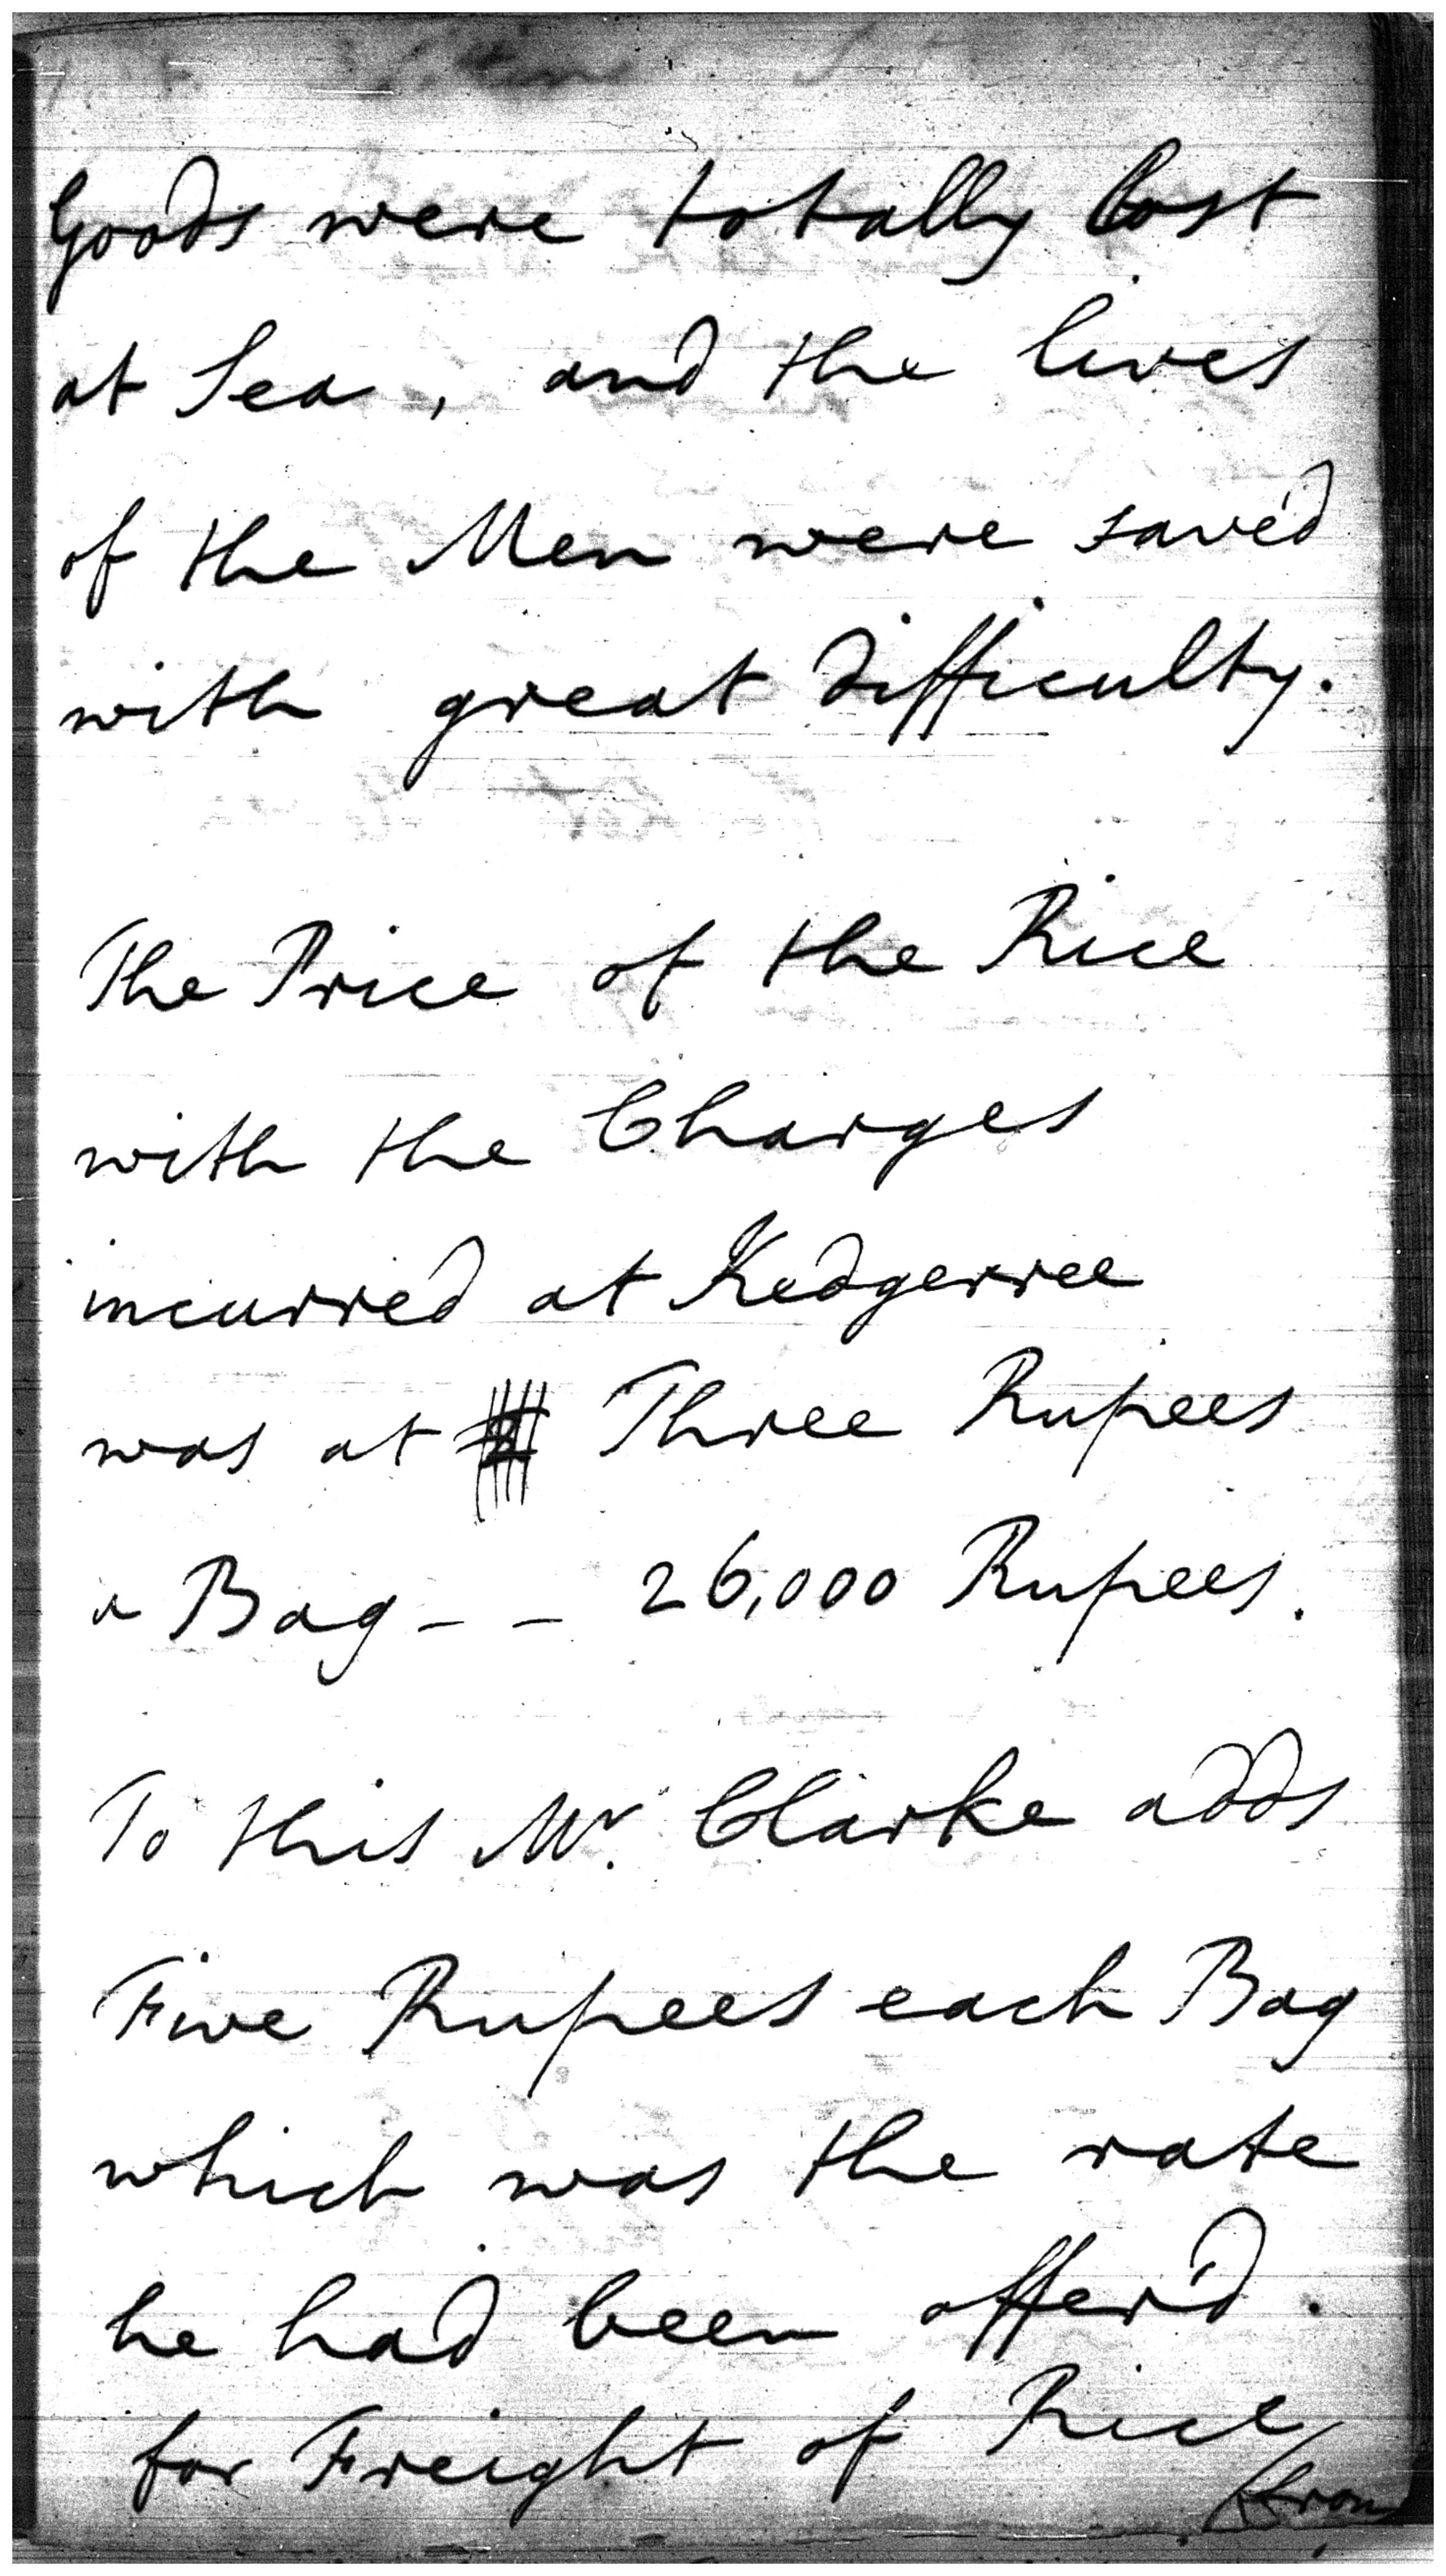 Goods were totally lost
at Sea, and the lives
of the Men were saved
with great difficulty.
The Price of the Rice
with the Charges
incurred at Kedgerree
was at Three Rupees
a Bag - - 26,000 Rupees.
To this Mr. Clarke adds
Five Rupees each Bag
which was the rate
he had been offer'd.
for Freight of Rice
from